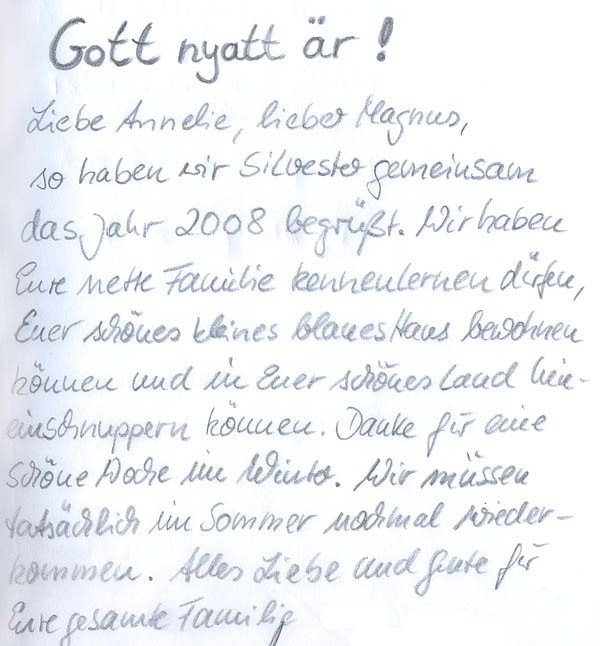 Gott nyatt är !
Liebe Annelie, lieber Magnus,
so haben wir Silvester gemeinsam
das Jahr 2008 begrüßt. Wir haben
Eure nette Familie kennenlernen dürfen,
Euer schönes kleines blaues Haus bewohnen
können und in Euer schönes Land hin-
einschnuppern können. Danke für eine
schöne Woche im Winter. Wir müssen
tatsächlich im Sommer nochmal wieder-
kommen. Alles Liebe und Gute für
Eure gesamte Familie